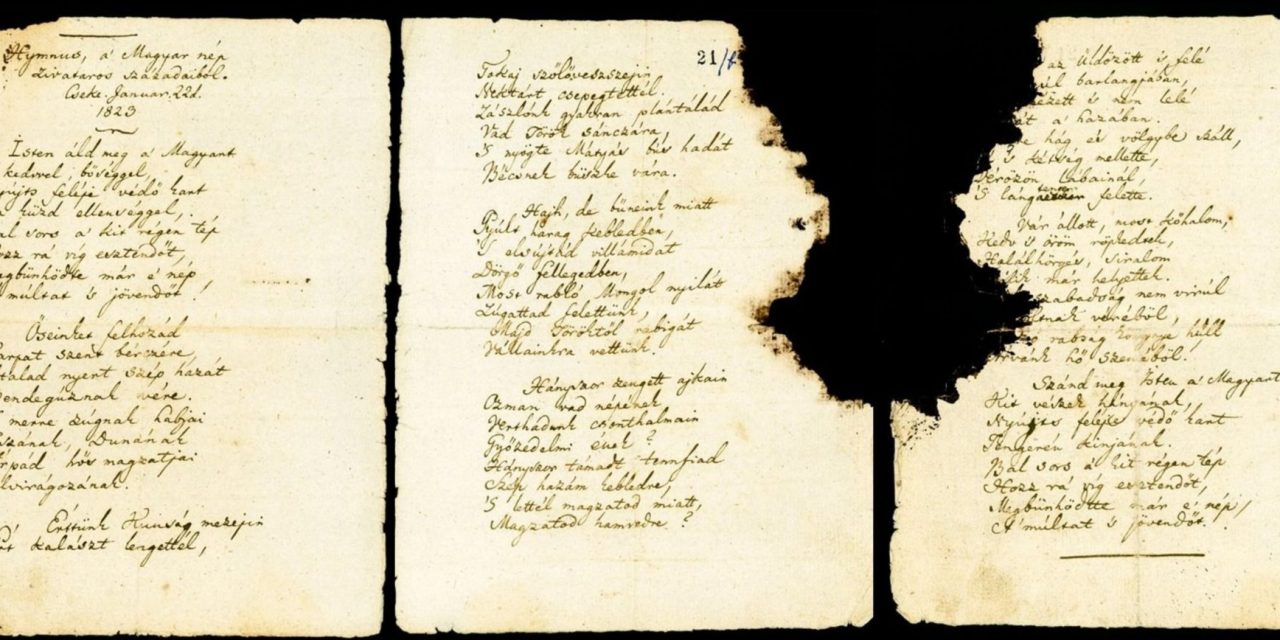 Hymnus, a' Magyar nép
zivataros századaiból.
Cseke. Januar. 22d.
1823
Isten áld meg a' Magyart
kedvvel, bőséggel,
nyújts feléje védő kart
küzd ellenséggel,
Bal sors a' kit régen tép
Hozz rá víg esztendőt,
Megbűnhödte már e' nép
múltat 's jövendőt!
Őseinket felhozád
Kárpát szent bérczére,
által nyert szép hazát
Bendegúznak vére.
merre zúgnak habjai
Tiszának, Dunának
Árpád hős magzatjai
Felvirágozának.
Értünk Kunság mezejin
kalászt lengettél,
21/
Tokaj szőlőveszszejin
Nektárt csepegtettél.
Zászlónk gyakran plántálád
Vad Török sánczára,
'S nyögte Mátyás bús hadát
Bécsnek büszke vára.
Hajh, de bűneink miatt
Gyúlt harag kebledben,
'S elsújtád villámidat
Dörgő fellegedben,
Most rabló Mongol nyilát
Zúgattad felettünk,
Majd Töröktől rabigát
Vállainkra vettünk.
Hányszor zengett ajkain
Ozman vad népének
Vert hadunk csonthalmain
Győzedelmi ének?
Hányszor támadt tennfiad
Szép hazám kebledre,
'S lettél magzatod miatt,
Magzatod hamvedre?
az üldözött 's felé
barlangjában,
nézett 's nem lelé
a' hazában.
hág és völgybe száll,
's kétség mellette,
Vérözön lábainál,
'S lángtenger felette.
Vár állott, most kőhalom,
Kedv 's öröm röpkedtek,
Halálhörgés, siralom
már helyettek.
szabadság nem virúl
véréből,
rabság könnye hull
Árvánk hő szeméből!
Szánd meg Isten a' Magyart
Kit vészek hányának,
Nyújts feléje védő kart
Tengerén kínjának.
Bal sors a' kit régen tép
Hozz rá víg esztendőt,
Megbűnhödte már e' nép
A' múltat 's jövendőt.